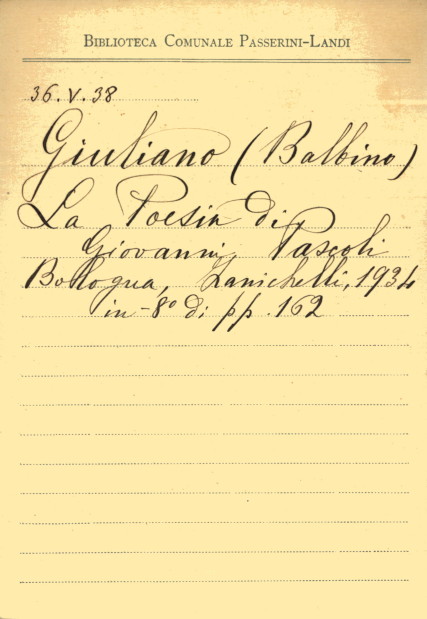 BIBLIOTECA COMUNALE PASSERINI-LANDI
36.V.38
Giuliano (Balbino)
La Poesia di
Giovanni Pascoli
Bologna, Zanichelli, 1934
in-8º di pp. 162